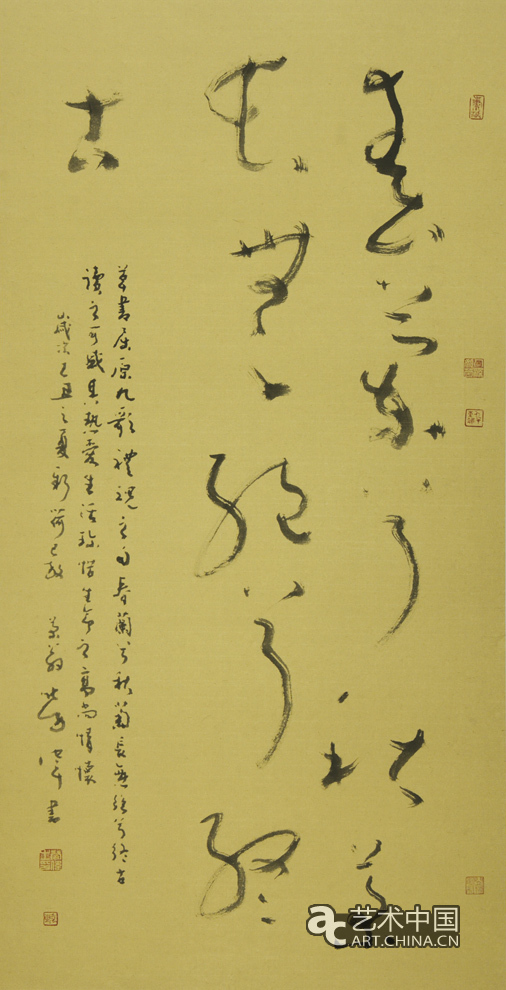 春蘭兮秋菊
長無絕兮終
古
草書屈原九歌禮魂之句春蘭兮秋菊長無絕兮終古
讀之可感其熱愛生活珍惜生命之高尚情懷
歲次己丑之夏新荷已放 書
ac 艺术中国
ART.CHINA.CN